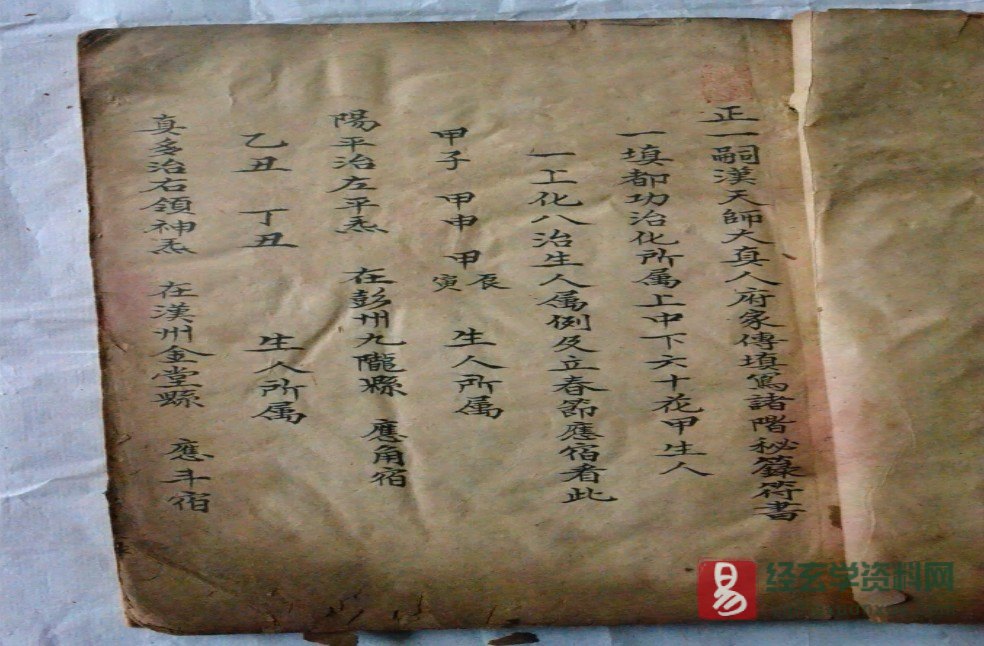 正一嗣漢天師大真人府家傳填寫諸階秘籙符書
一填都功治化所属上中下六十花甲生人
一上化八治生人属例及立春節應宿者此
甲子 甲申 甲寅辰 生人所属
陽平治左平炁 在彭州九隴縣 應角宿
乙丑 丁丑 生人所属
真多治右領神炁 在漢州金堂縣 應斗宿
易 经玄学资料网